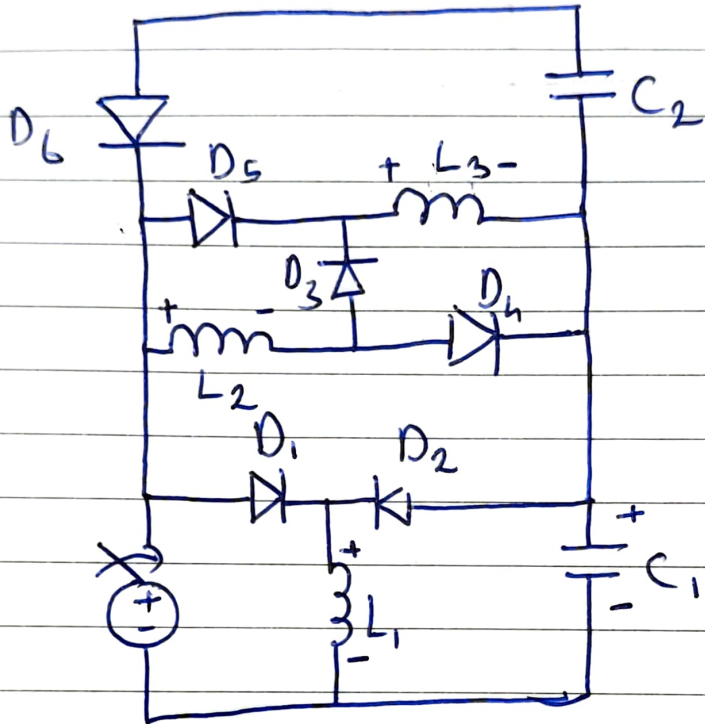 C2
D6
D5
+ L3 -
D3
D4
+ -
L2
D1
D2
+
+
C1
+
-
L1
-
-